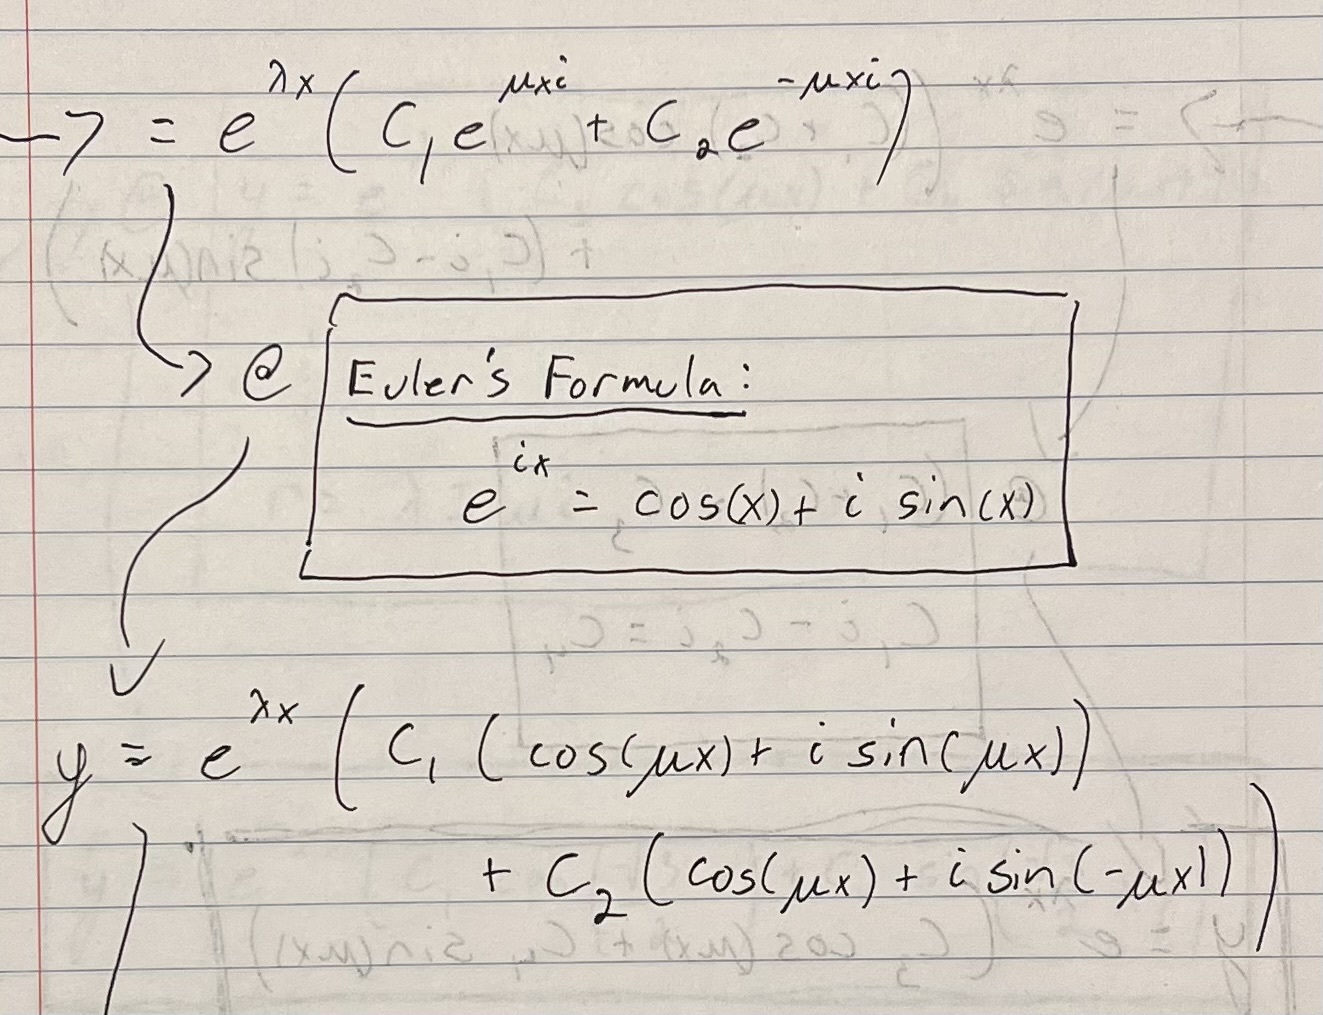 → = e^{λx} ( C₁e^{μxi} + C₂e^{-μxi} )
→ @ Euler's Formula:
e^{ix} = cos(x) + i sin(x)
y = e^{λx} ( C₁ ( cos(μx) + i sin(μx) )
+ C₂ ( cos(μx) + i sin(-μx) ) )